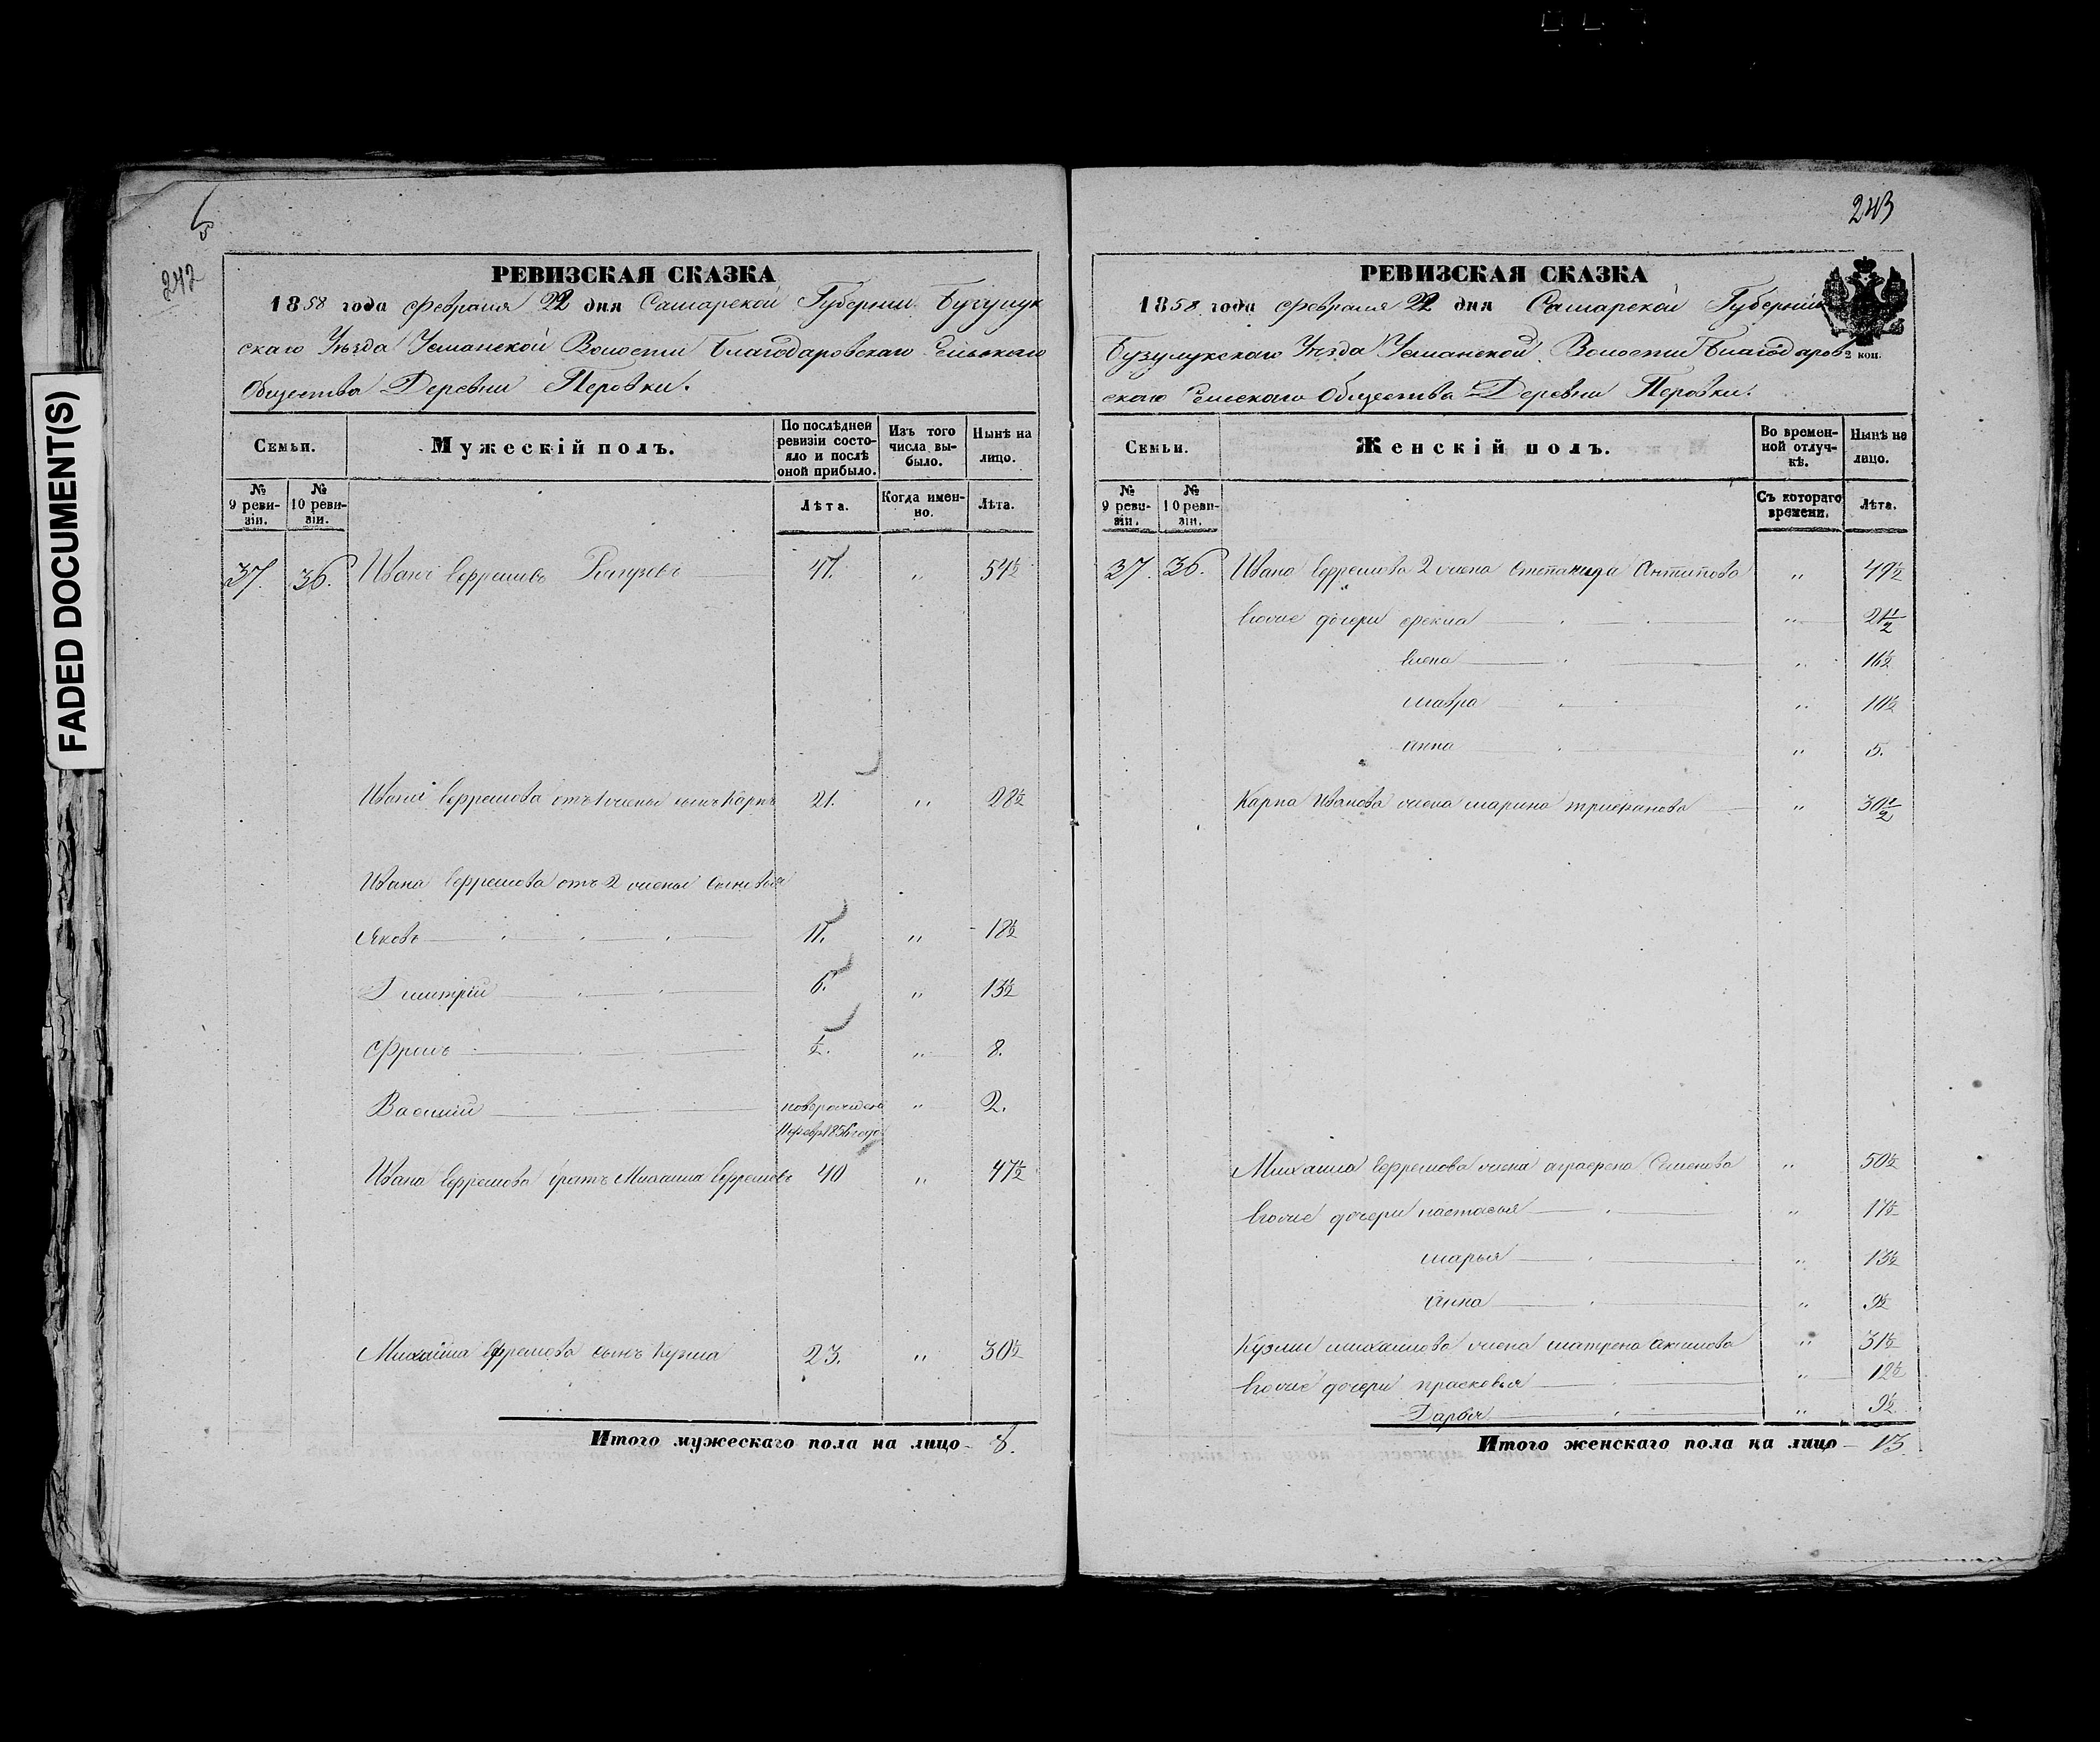 FADED DOCUMENT(S)
242
РЕВИЗСКАЯ СКАЗКА
1858 года Февраля 22 дня Самарской Губернии Бузулук
скаго Уѣзда Усманской Волости Благодаровскаго Сельскаго
Общества Деревни Перовки.
Семьи.
Мужескій полъ.
По послѣдней ревизіи состояло и послѣ оной прибыло.
Изъ того числа выбыло.
Нынѣ на лицо.
№ 9 ревизіи.
№ 10 ревизіи.
Лѣта.
Когда именно.
Лѣта.
37. 36. Иванъ Ефремовъ 47. „ 54½
Ивана Ефремова отъ 1 жены сынъ Карпъ 21. „ 28½
Ивана Ефремова отъ 2 жены сыновья
Яковъ 11. „ 18½
Дмитрій 6. „ 13½
Фролъ ½. „ 8.
Василій новорожденъ „ 2.
Ивана Ефремова братъ Михаила Ефремовъ 40 „ 47½
Михайла Ефремова сынъ Кузма 23. „ 30½
Итого мужескаго пола на лицо 8.
243
РЕВИЗСКАЯ СКАЗКА
1858 года Февраля 22 дня Самарской Губерніи
Бузулукскаго Уѣзда Усманской Волости Благодаров
2 коп.
скаго Сельскаго Общества Деревни Перовки.
Семьи.
Женскій полъ.
Во временной отлучкѣ.
Нынѣ на лицо.
№ 9 ревизіи.
№ 10 ревизіи.
Съ котораго времени.
Лѣта.
37. 36. Ивана Ефремова 2 жена Степанида Антипова „ 49½
Егоже дочери Фекла „ 21½
Елена „ 16½
мавра „ 10½
анна „ 5.
Карпа Иванова жена марина трифанова „ 30½
Михаила Ефремова жена аграфена Семенова „ 50½
Егоже дочери настасья „ 17½
марья „ 13½
Анна „ 9½
Кузмы михаилова жена матрена акимова „ 31½
Егоже дочери прасковья „ 12½
Дарья „ 9½
Итого женскаго пола на лицо 13.